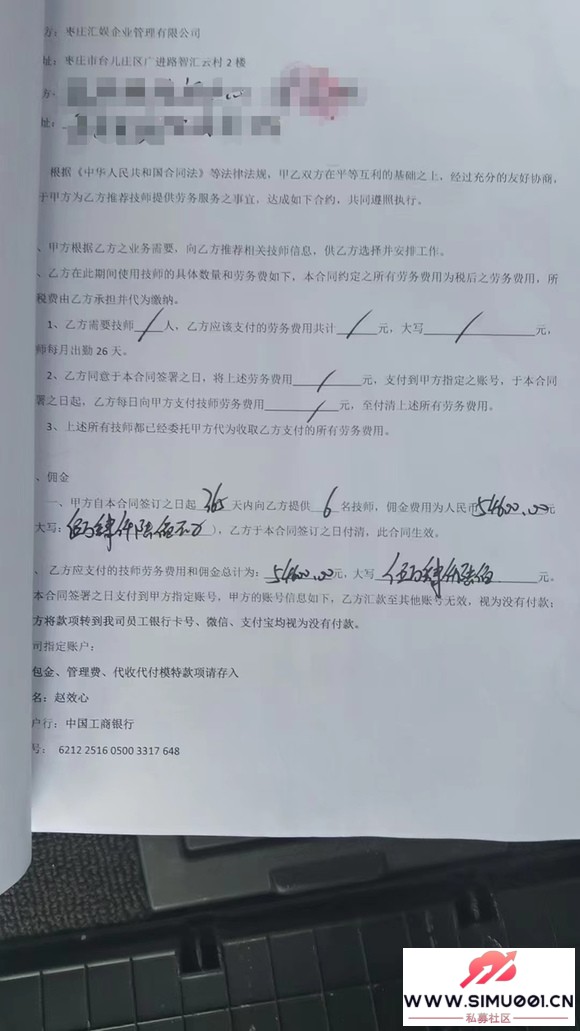 方：枣庄汇娱企业管理有限公司
址：枣庄市台儿庄区广进路智汇云村2楼
方：
址：
根据《中华人民共和国合同法》等法律法规，甲乙双方在平等互利的基础之上，经过充分的友好协商，
于甲方为乙方推荐技师提供劳务服务之事宜，达成如下合约，共同遵照执行。
、甲方根据乙方之业务需要，向乙方推荐相关技师信息，供乙方选择并安排工作。
、乙方在此期间使用技师的具体数量和劳务费如下，本合同约定之所有劳务费用为税后之劳务费用，所
税费由乙方承担并代为缴纳。
1、乙方需要技师 / 人，乙方应该支付的劳务费用共计 / 元，大写 / 元，
师每月出勤26天。
2、乙方同意于本合同签署之日，将上述劳务费用 / 元，支付到甲方指定之账号，于本合同
署之日起，乙方每日向甲方支付技师劳务费用 / 元，至付清上述所有劳务费用。
3、上述所有技师都已经委托甲方代为收取乙方支付的所有劳务费用。
、佣金
一、甲方自本合同签订之日起 365 天内向乙方提供 6 名技师，佣金费用为人民币 54600.00 元
大写：伍万肆仟陆佰），乙方于本合同签订之日付清，此合同生效。
、乙方应支付的技师劳务费用和佣金总计为：54600.00 元，大写 伍万肆仟陆佰 元。
本合同签署之日支付到甲方指定账户，甲方的账号信息如下，乙方汇款至其他账号无效，视为没有付款；
方将款项转到我司员工银行卡号、微信、支付宝均视为没有付款。
司指定账户：
包金、管理费、代收代付模特款项请存入
名：赵效心
户行：中国工商银行
号： 6212 2516 0500 3317 648
WWW.SIMU001.CN
私募社区